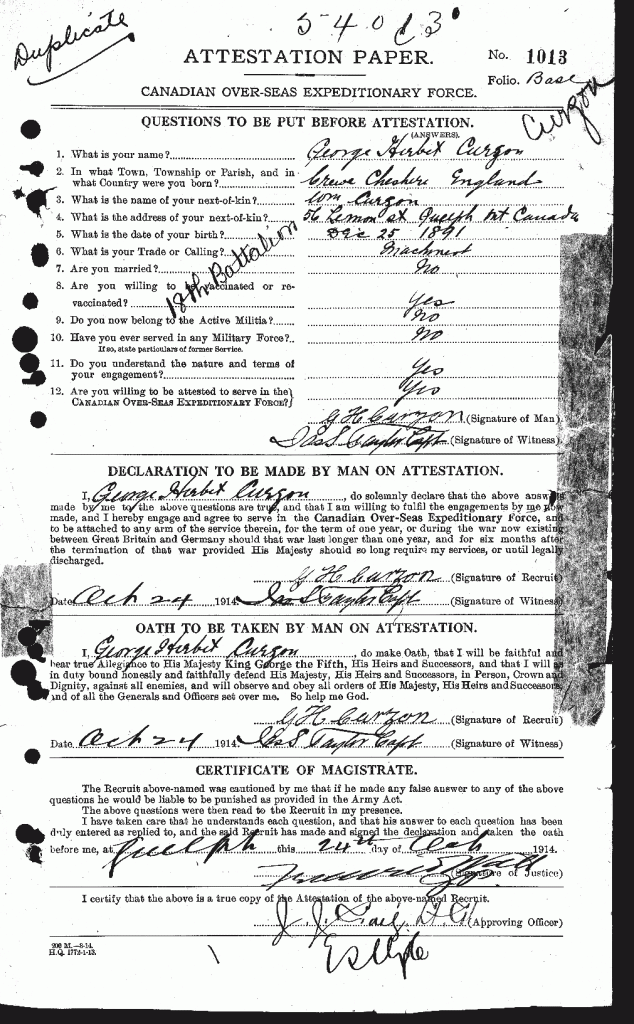 Duplicate
54013
ATTESTATION PAPER.
No. 1013
Folio. Base
CANADIAN OVER-SEAS EXPEDITIONARY FORCE.
Curzon
QUESTIONS TO BE PUT BEFORE ATTESTATION.
(ANSWERS).
1. What is your name? George Herbet Curzon
2. In what Town, Township or Parish, and in
what Country were you born? Crewe Cheshire England
3. What is the name of your next-of-kin? Wm Curzon
4. What is the address of your next-of-kin? 56 Lemon st Guelph Ont Canada
5. What is the date of your birth? Dec 25 1891
6. What is your Trade or Calling? Machinest
7. Are you married? No
18th Battalion
8. Are you willing to be vaccinated or re-
vaccinated? Yes
9. Do you now belong to the Active Militia? No
10. Have you ever served in any Military Force? No
If so, state particulars of former Service.
11. Do you understand the nature and terms of
your engagement? Yes
12. Are you willing to be attested to serve in the
CANADIAN OVER-SEAS EXPEDITIONARY FORCE? Yes
G H Curzon (Signature of Man)
Jas S Taylor Capt (Signature of Witness)
DECLARATION TO BE MADE BY MAN ON ATTESTATION.
I, George Herbet Curzon, do solemnly declare that the above answers
made by me to the above questions are true, and that I am willing to fulfil the engagements by me now
made, and I hereby engage and agree to serve in the Canadian Over-Seas Expeditionary Force, and
to be attached to any arm of the service therein, for the term of one year, or during the war now existing
between Great Britain and Germany should that war last longer than one year, and for six months after
the termination of that war provided His Majesty should so long require my services, or until legally
discharged.
G H Curzon (Signature of Recruit)
Date Oct 24 1914. Jas S Taylor Capt (Signature of Witness)
OATH TO BE TAKEN BY MAN ON ATTESTATION.
I, George Herbet Curzon, do make Oath, that I will be faithful and
bear true Allegiance to His Majesty King George the Fifth, His Heirs and Successors, and that I will as
in duty bound honestly and faithfully defend His Majesty, His Heirs and Successors, in Person, Crown and
Dignity, against all enemies, and will observe and obey all orders of His Majesty, His Heirs and Successors,
and of all the Generals and Officers set over me. So help me God.
G H Curzon (Signature of Recruit)
Date Oct 24 1914. Jas S Taylor Capt (Signature of Witness)
CERTIFICATE OF MAGISTRATE.
The Recruit above-named was cautioned by me that if he made any false answer to any of the above
questions he would be liable to be punished as provided in the Army Act.
The above questions were then read to the Recruit in my presence.
I have taken care that he understands each question, and that his answer to each question has been
duly entered as replied to, and the said Recruit has made and signed the declaration and taken the oath
before me, at Guelph this 24th day of Oct 1914.
(Signature of Justice)
I certify that the above is a true copy of the Attestation of the above-named Recruit.
(Approving Officer)
200 M.—8-14.
H.Q. 1772-1-13.